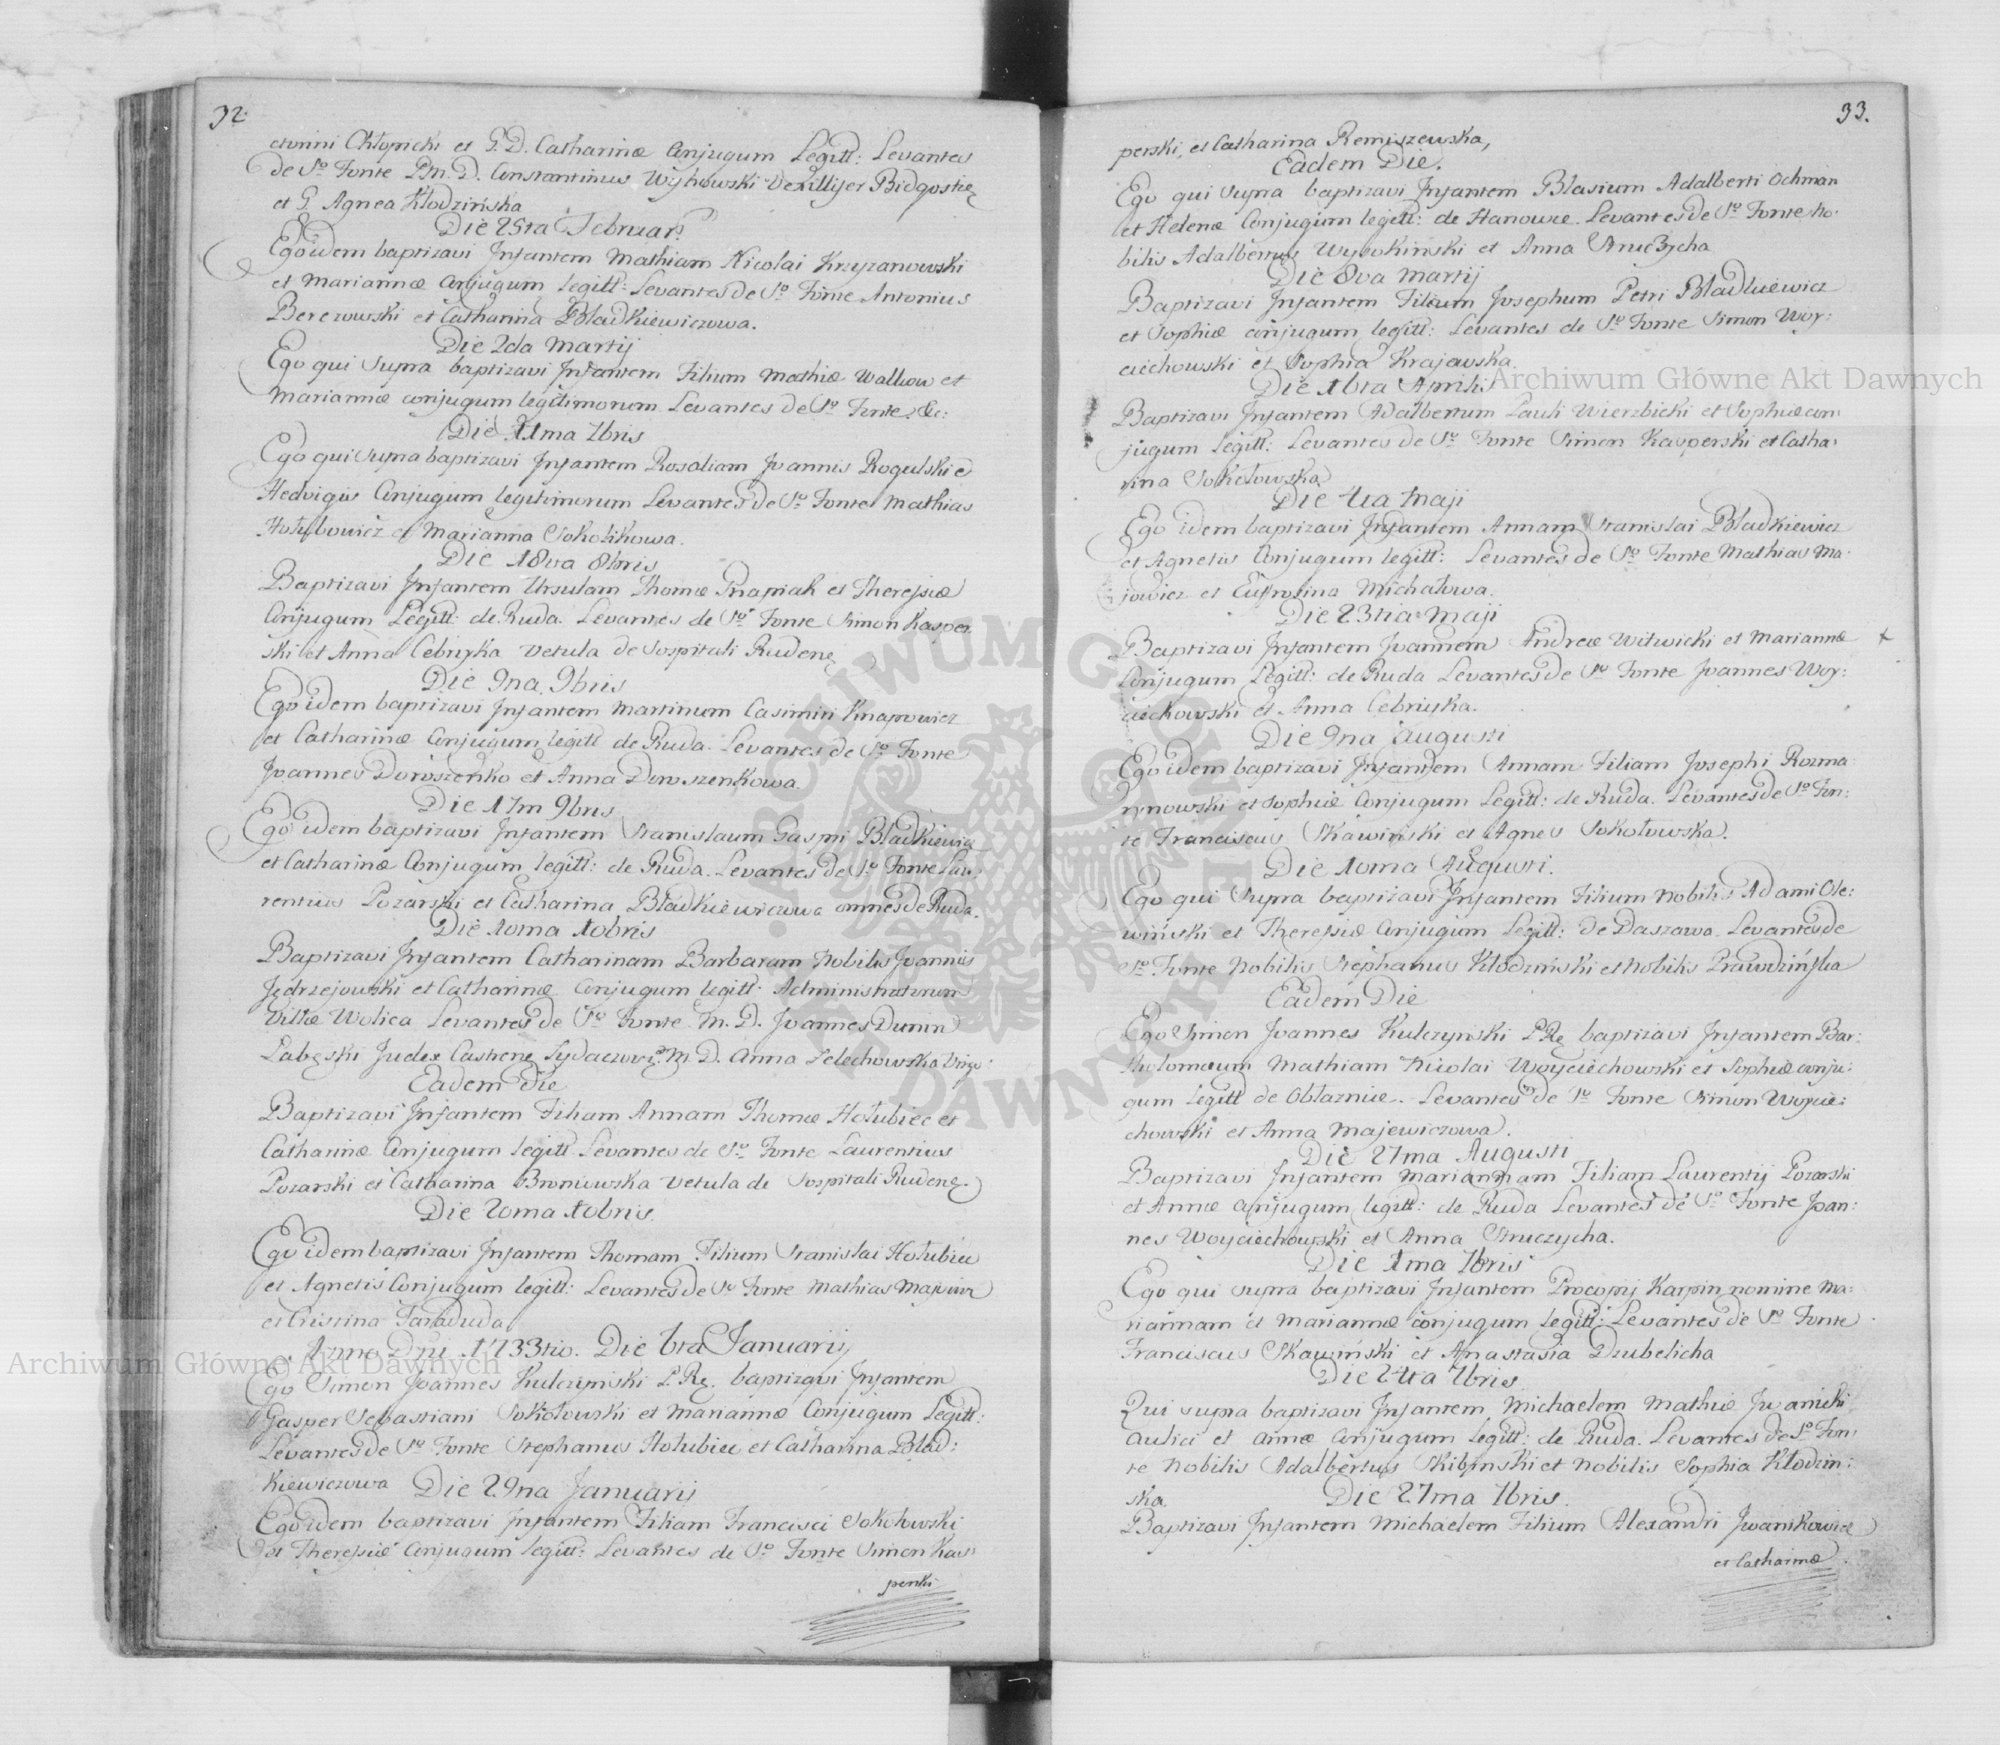 32.
Antonini Chłopicki et G. D. Catharinæ Conjugum Legitt: Levantes
de So Fonte Pm. D. Constantinus Wyhowski Vexillifer Bidgostię
et G. Agnea Kłodzińska
Die 25ta Februar:
Ego idem baptizavi Infantem Mathiam Nicolai Krzyzanowski
et Mariannæ Conjugum legitt: Levantes de So Fonte Antonius
Berezowski et Catharina Bladkiewiczowa.
Die 2da Martij
Ego qui supra baptizavi Infantem Filium Mathiæ Walkow et
Mariannæ conjugum legitimorum Levantes de So Fonte &c:
Die 11ma 7bris
Ego qui supra baptizavi Infantem Rosaliam Joannis Rogulski e
Hedvigis Conjugum legitimorum Levantes de So Fonte Mathias
Hołubowicz et Marianna Sokolikowa.
Die 18va 8bris
Baptizavi Infantem Ursulam Thomæ Pnapiak et Theressiæ
Conjugum Legitt: de Ruda. Levantes de So Fonte Simon Kasper
ski et Anna Cebryka vetula de Sospitali Rudenę
Die 9na 9bris
Ego idem baptizavi Infantem Martinum Casimiri Knapowicz
et Catharinæ Conjugum legitt de Ruda. Levantes de So Fonte
Joannes Doroszeńko et Anna Doroszenkowa.
Die 17m 9bris
Ego idem baptizavi Infantem Stanislaum Gaspri Bladkiewicz
et Catharinæ Conjugum legitt: de Ruda. Levantes de So Fonte Lau
rentius Pozarski et Catharina Bładkiewiczowa omnes de Ruda.
Die 10ma 10bris
Baptizavi Infantem Catharinam Barbaram Nobilis Joannis
Jędrzejowski et Catharinæ Conjugum legitt: Administratorum
Villæ Wolica Levantes de So Fonte M. D. Joannes Dunin
Łabęski Judex Castrenę Lydaczovię M. D. Anna Zelechowska Virgo
Eadem Die
Baptizavi Infantem Filiam Annam Thomæ Hołubiec et
Catharinæ Conjugum legitt Levantes de So Fonte Laurentius
Pozarski et Catharina Broniewska vetula de Sospitali Rudenę.
Die 20ma 10bris
Ego idem baptizavi Infantem Thomam Filium Stanislai Hołubiec
et Agnetis Conjugum legitt: Levantes de So Fonte Mathias Majowicz
et Cristina Faraduda
Anno Dni 1733tio. Die 6ta Januarij
Ego Simon Joannes Kulczynski P. Rę. baptizavi Infantem
Gasper Sebastiani Sokołowski et Mariannæ Conjugum Legitt:
Levantes de So Fonte Stephanus Hołubiec et Catharina Blad:
Kiewiczowa Die 29na Januaris
Ego idem baptizavi Infantem Filiam Francisci Sokołowski
et Theressiæ Conjugum legitt: Levantes de So Fonte Simon Kas
perski
33.
perski, et Catharina Remiszewska,
Eadem Die.
Ego qui supra baptizavi Infantem Blasium Adalberti Ochman
et Helenæ Conjugum legitt: de Hanowce. Levantes de So Fonte No:
bilis Adalbertus Wysokiński et Anna Struczycha
Die 8va Martij
Baptizavi Infantem Filium Josephum Petri Bladkiewicz
et Sophiæ conjugum legitt: Levantes de So Fonte Simon Woy:
ciechowski et Sophia Krajewska
Die 16ta Aprilis
Baptizavi Infantem Adalbertum Pauli Wierzbicki et Sophiæ con
jugum legitt: Levantes de So Fonte Simon Kasperski et Catha:
rina Sokołowska
Die 4ta Maji
Ego idem baptizavi Infantem Annam Stanislai Bladkiewicz
et Agnetis Conjugum legitt: Levantes de So Fonte Mathias Ma:
jowicz et Eufrosina Michałowa.
Die 23tia Maji
Baptizavi Infantem Joannem Andreæ Witwicki et Mariannæ
Conjugum Legitt: de Ruda Levantes de So Fonte Joannes Woy:
ciechowski et Anna Cebryka.
Die 9na Augusti
Ego idem baptizavi Infantem Annam Filiam Josephi Rozma
rynowski et Sophiæ Conjugum Legitt: de Ruda. Levantes de So Fon:
te Franciscus Skawiński et Agnes Sokołowska.
Die 10ma Augusti.
Ego qui supra baptizavi Infantem Filium Nobilis Adami Ole:
wiński et Theressiæ Conjugum Legitt: de Daszawa. Levantes de
So Fonte Nobilis Stephanus Kłodziński et Nobilis Prawdzińska
Eadem Die
Ego Simon Joannes Kulczynski P. Rę baptizavi Infantem Bar:
tholomæum Mathiam Nicolai Woyciechowski et Sophiæ conju:
gum legitt de Obłaznice. Levantes de So Fonte Simon Woycie:
chowski et Anna Majewiczowa.
Die 27ma Augusti
Baptizavi Infantem Mariannam Filiam Laurentij Pozarski
et Annæ Conjugum legitt: de Ruda Levantes de So Fonte Joan:
nes Woyciechowski et Anna Struczycha.
Die 1ma 7bris
Ego qui supra baptizavi Infantem Procopij Karpin nomine Ma:
riannam et Mariannæ conjugum legitt: Levantes de So Fonte
Franciscus Skawiński et Anastasia Dzubelicha
Die 24ta 7bris
Qui supra baptizavi Infantem Michaelem Mathiæ Iwanicki
Aulici et Annæ Conjugum legitt: de Ruda. Levantes de So Fon:
te Nobilis Adalbertus Skibinski et Nobilis Sophia Kłodzin:
ska. Die 27ma 7bris.
Baptizavi Infantem Michaelem Filium Alexandri Iwanikowicz
et Catharinæ
Archiwum Główne Akt Dawnych
Archiwum Główne Akt Dawnych
ARCHIWUM GŁÓWNE AKT DAWNYCH